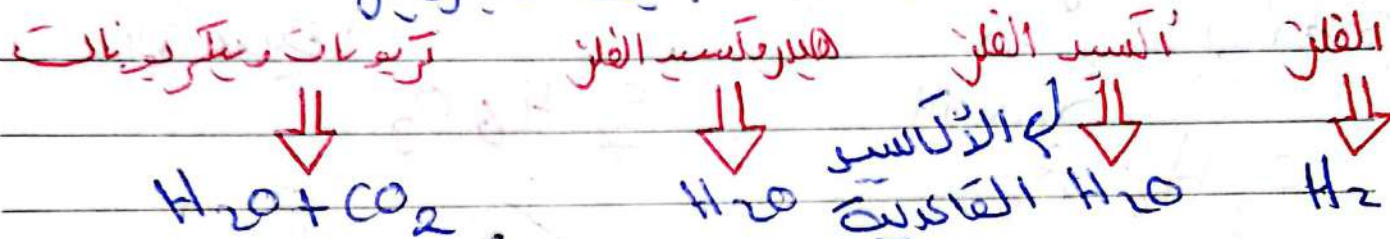 الفلز أكسيد الفلز هيدروكسيد الفلز كربونات وبيكربونات
H2 H2O الأكاسيد القاعدية H2O H2O + CO2